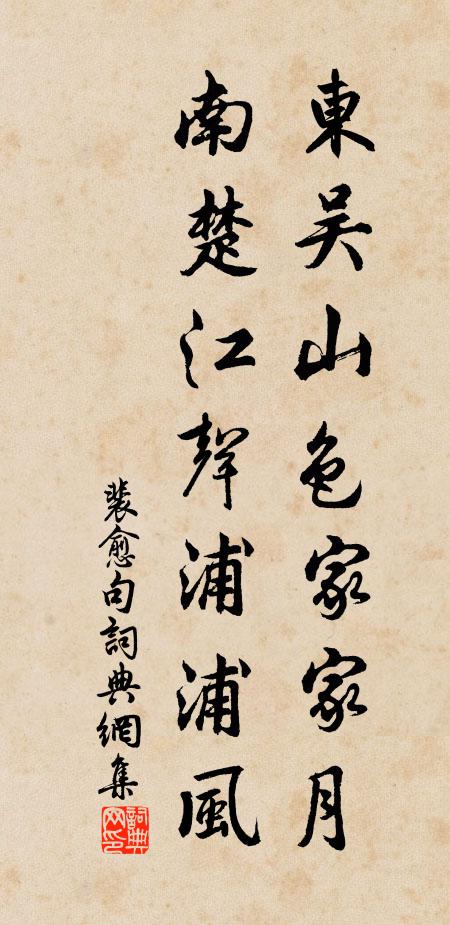 東吴山色家家月
南楚江聲浦浦風
裴愈句詞典網集
詞典网印